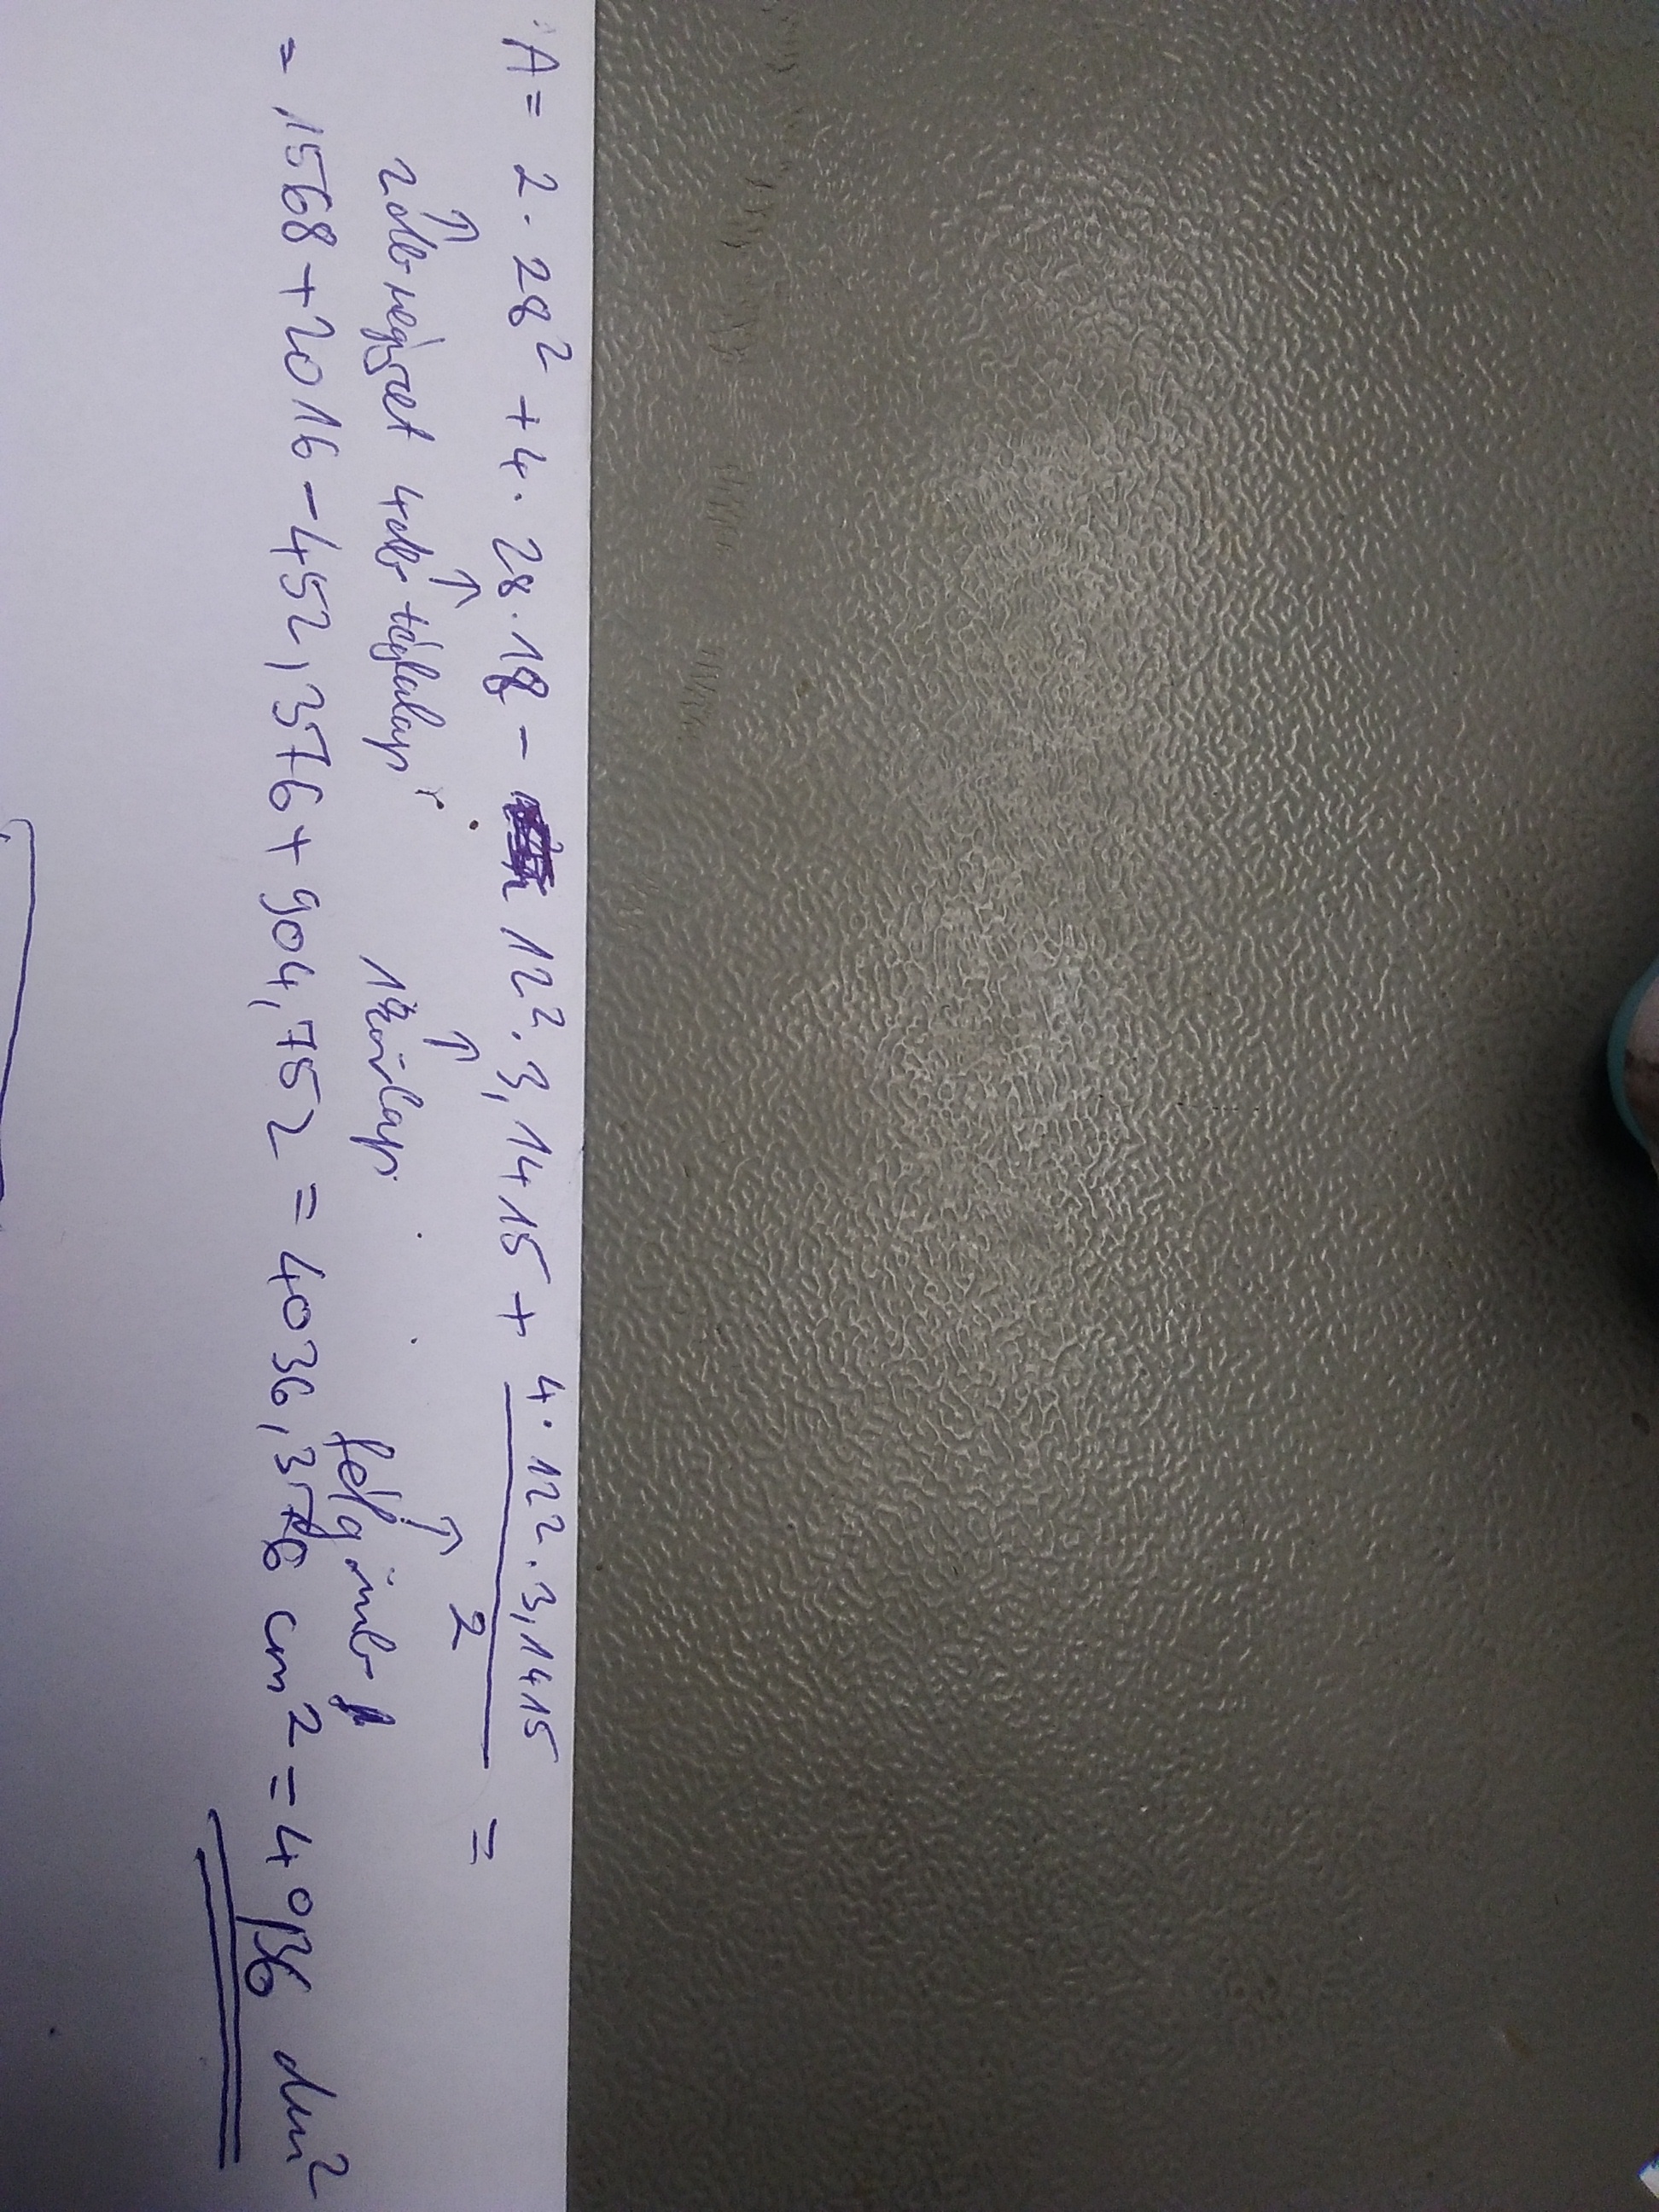 A = 2 · 28² + 4 · 28 · 18 - 12² · 3,1415 + 4 · 12² · 3,1415 / 2 =
2 db négyzet 4 db téglalap 1 körlap félgömb
= 1568 + 2016 - 452,376 + 904,752 = 4036,376 cm² = 40,36 dm²